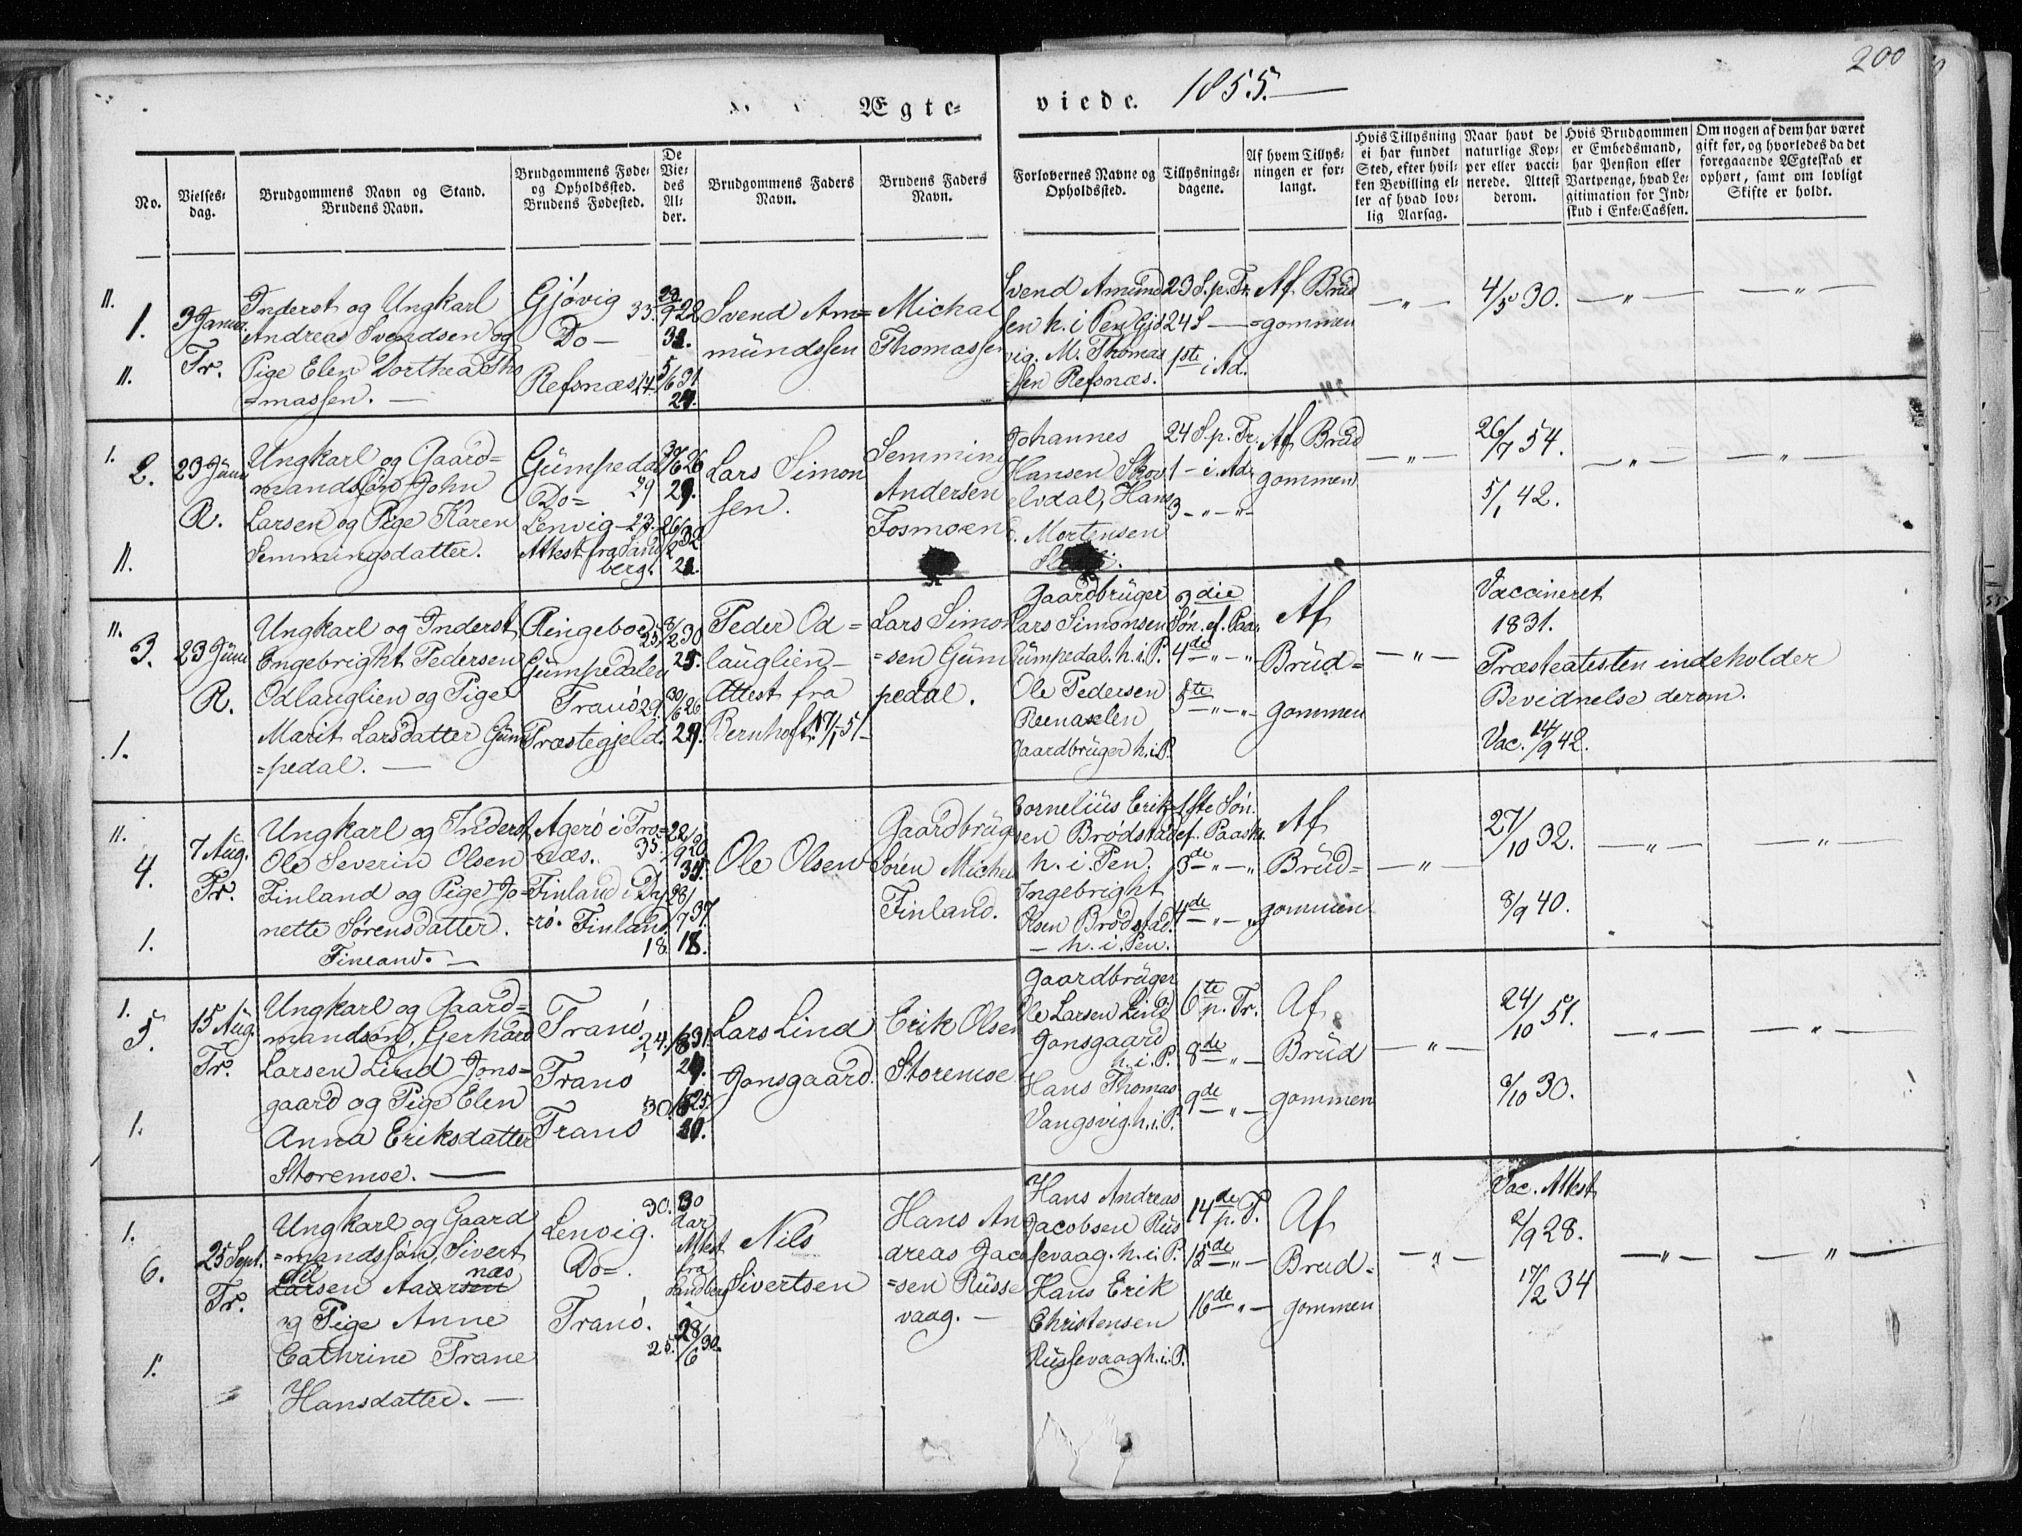 200
Ægte-viede. 1855.
No.
Vielses-
dag.
Brudgommens Navn og Stand.
Brudens Navn.
Brudgommens Føde-
og Opholdssted.
Brudens Fødested.
De
Vie-
des
Al-
der.
Brudgommens Faders
Navn.
Brudens Faders
Navn.
Forlovernes Navne og
Opholdssted.
Tillysnings-
dagene.
Af hvem Tillys-
ningen er for-
langt.
Hvis Tillysning
ei har fundet
Sted, efter hvil-
ken Bevilling el-
ler af hvad lov-
lig Aarsag.
Naar havt de
naturlige Kop-
per eller vacci-
nerede. Attest
derom.
Hvis Brudgommen
er Embedsmand,
har Pension eller
Vartpenge, hvad Le-
gitimation for Ind-
skud i Enke-Cassen.
Om nogen af dem har været
gift før, og hvorledes da det
foregaaende Ægteskab er
ophørt, samt om lovligt
Skifte er holdt.
II.
1.
II.
3 Januar.
Tr.
Inderst og Ungkarl
Andreas Svendsen og
Pige Elen Dorthea Tho
=massen. —
Gjøvig 33.
Do —
Refsnæs 24.
22
32.
5/6 31
24.
Svend Am=
mündssen
Michal
Thomassen
Svend Amünd
sen h. i Pen Gjö
vig. M. Thomas
=sen Refsnæs.
23 S. p. Tr.
24 S —
1ste i Ad.
Af Brüd
=gommen
— " —
4/5 30.
— " —
— " —
1.
2.
II.
23 Jüni
R.
Ungkarl og Gaard=
mandssøn John
Larsen og Pige Karen
Semmingsdatter.
Gümpedal
Do= 29
Lenvig — 23.
Attest fra Sand
berg.
30/6 26
29.
26/2 32
Lars Simon
sen.
Semming
Andersen
Fosmoen
Johannes
Hansen Skov
elvdal, Hans
Mortensen
24 S. p. Tr.
1 — i Adv
3 — " — " —
Af Brüd
gommen
— " —
26/7 54.
5/1 42.
— " —
— " —
II.
3.
1.
23 Jüni
R.
Ungkarl og Inderst
Engebright Pedersen
Odlauglien og Pige
Marit Larsdatter Güm
=pedal. —
Ringeboe 25.
Gümpedalen
Tranö 29.
Præstegjeld.
8/2 30
25.
30/6 26
29.
Peder Od=
lauglien —
Attest fra
Bernhoft 17/1 51 —
Lars Simon
=sen Güm
pedal.
Gaardbrüger
Lars Simonsen
Gümpedal. h. i. P.
Ole Pedersen
Gaardbrüger h. i. P.
3die
Søn. ef. Paa.
4de — " — " —
5te — " — " —
Af
Brüd=
gommen
— " —
Vaccineret
1831.
Præsteatesten indeholder
Bevidnelse derom.
Vac. 14/9 42.
II.
4.
1.
7 Aug.
Tr.
Ungkarl og Inderst
Ole Severin Olsen
Finland og Pige Jo-
nette Sørensdatter.
Finland. —
Agerö i Tro=
=næs. 35.
Finland i Dy
=rö. Finland.
18.
22/9 20
35.
28/7 37.
18.
Ole Olsen
Gaardbrüg
Sören Michel
Finland.
Cornelius Erik
sen Brödstad
h. i. Pen.
Ingebright
Olsen Brödstad.
— h. i. Pen.
1ste Søn.
ef. Paask.
3de — " — " —
4de — " — " —
Af
Brüd=
gommen
— " —
27/10 32.
8/9 40.
— " —
— " —
1.
5.
1.
15 Aug.
Tr.
Ungkarl og Gaard=
mandsøn, Gerhard
Larsen Lind Jons=
gaard og Pige Elen
Anna Eriksdatter
Storemoe. —
Tranö
24.
Tranö
30.
Tranö
31.
24.
25.
Lars Lind
Jonsgaard.
Erik Olsen
Storemoe
Gaardbrüger
Ole Larsen Lind
Jonsgaard
h. i. P.
Hans Thomas
Vangsvig h. i. P.
6te
p. Tr.
8de — " —
9de — " —
Af
Brüd
gommen
— " —
24/10 51.
9/10 30.
— " —
— " —
1.
6.
1.
25 Sept.
Tr.
Ungkarl og Gaard
=mandssøn, Sivert
Nil
Larsen Aarsen næs
og Pige Anne
Cathrine Trane
Hansdatter. —
30.
Lenvig.
Do=.
Tranö.
25.
30
Aar
Attest
fra
Sandberg
28/6 30.
Nils
Sivertsen
Hans An
dreas Jaco
=sen Russe
vaag. —
Hans Andreas
Jacobsen Rus
sevaag. h. i. P.
Hans Erik
Christensen
Russevaag h. i. P.
14de
p. T.
15de " —
16de " —
Af
Brud=
gommen
— " —
Vac. Attest
2/9 28.
17/2 34
— " —
— " —